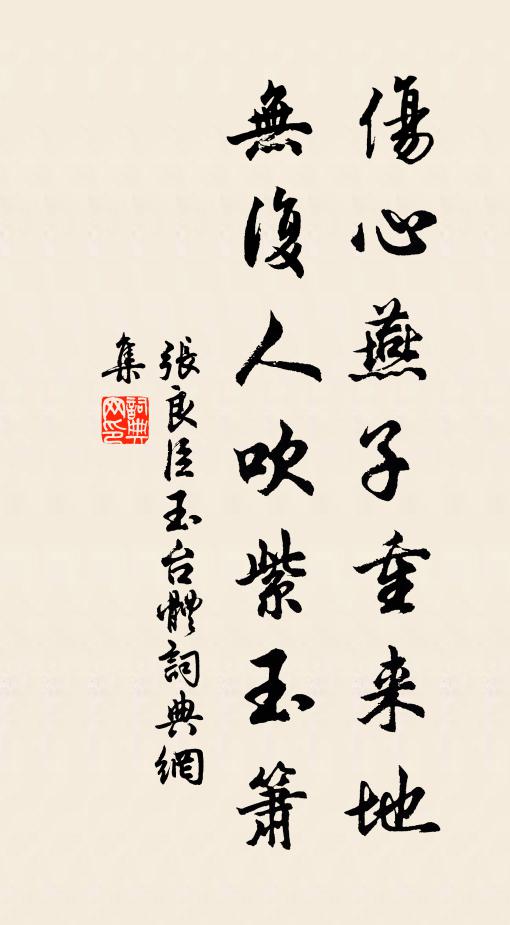 傷心燕子重来地
無復人吹紫玉簫
張良臣玉台體詞典網
集
詞典網印